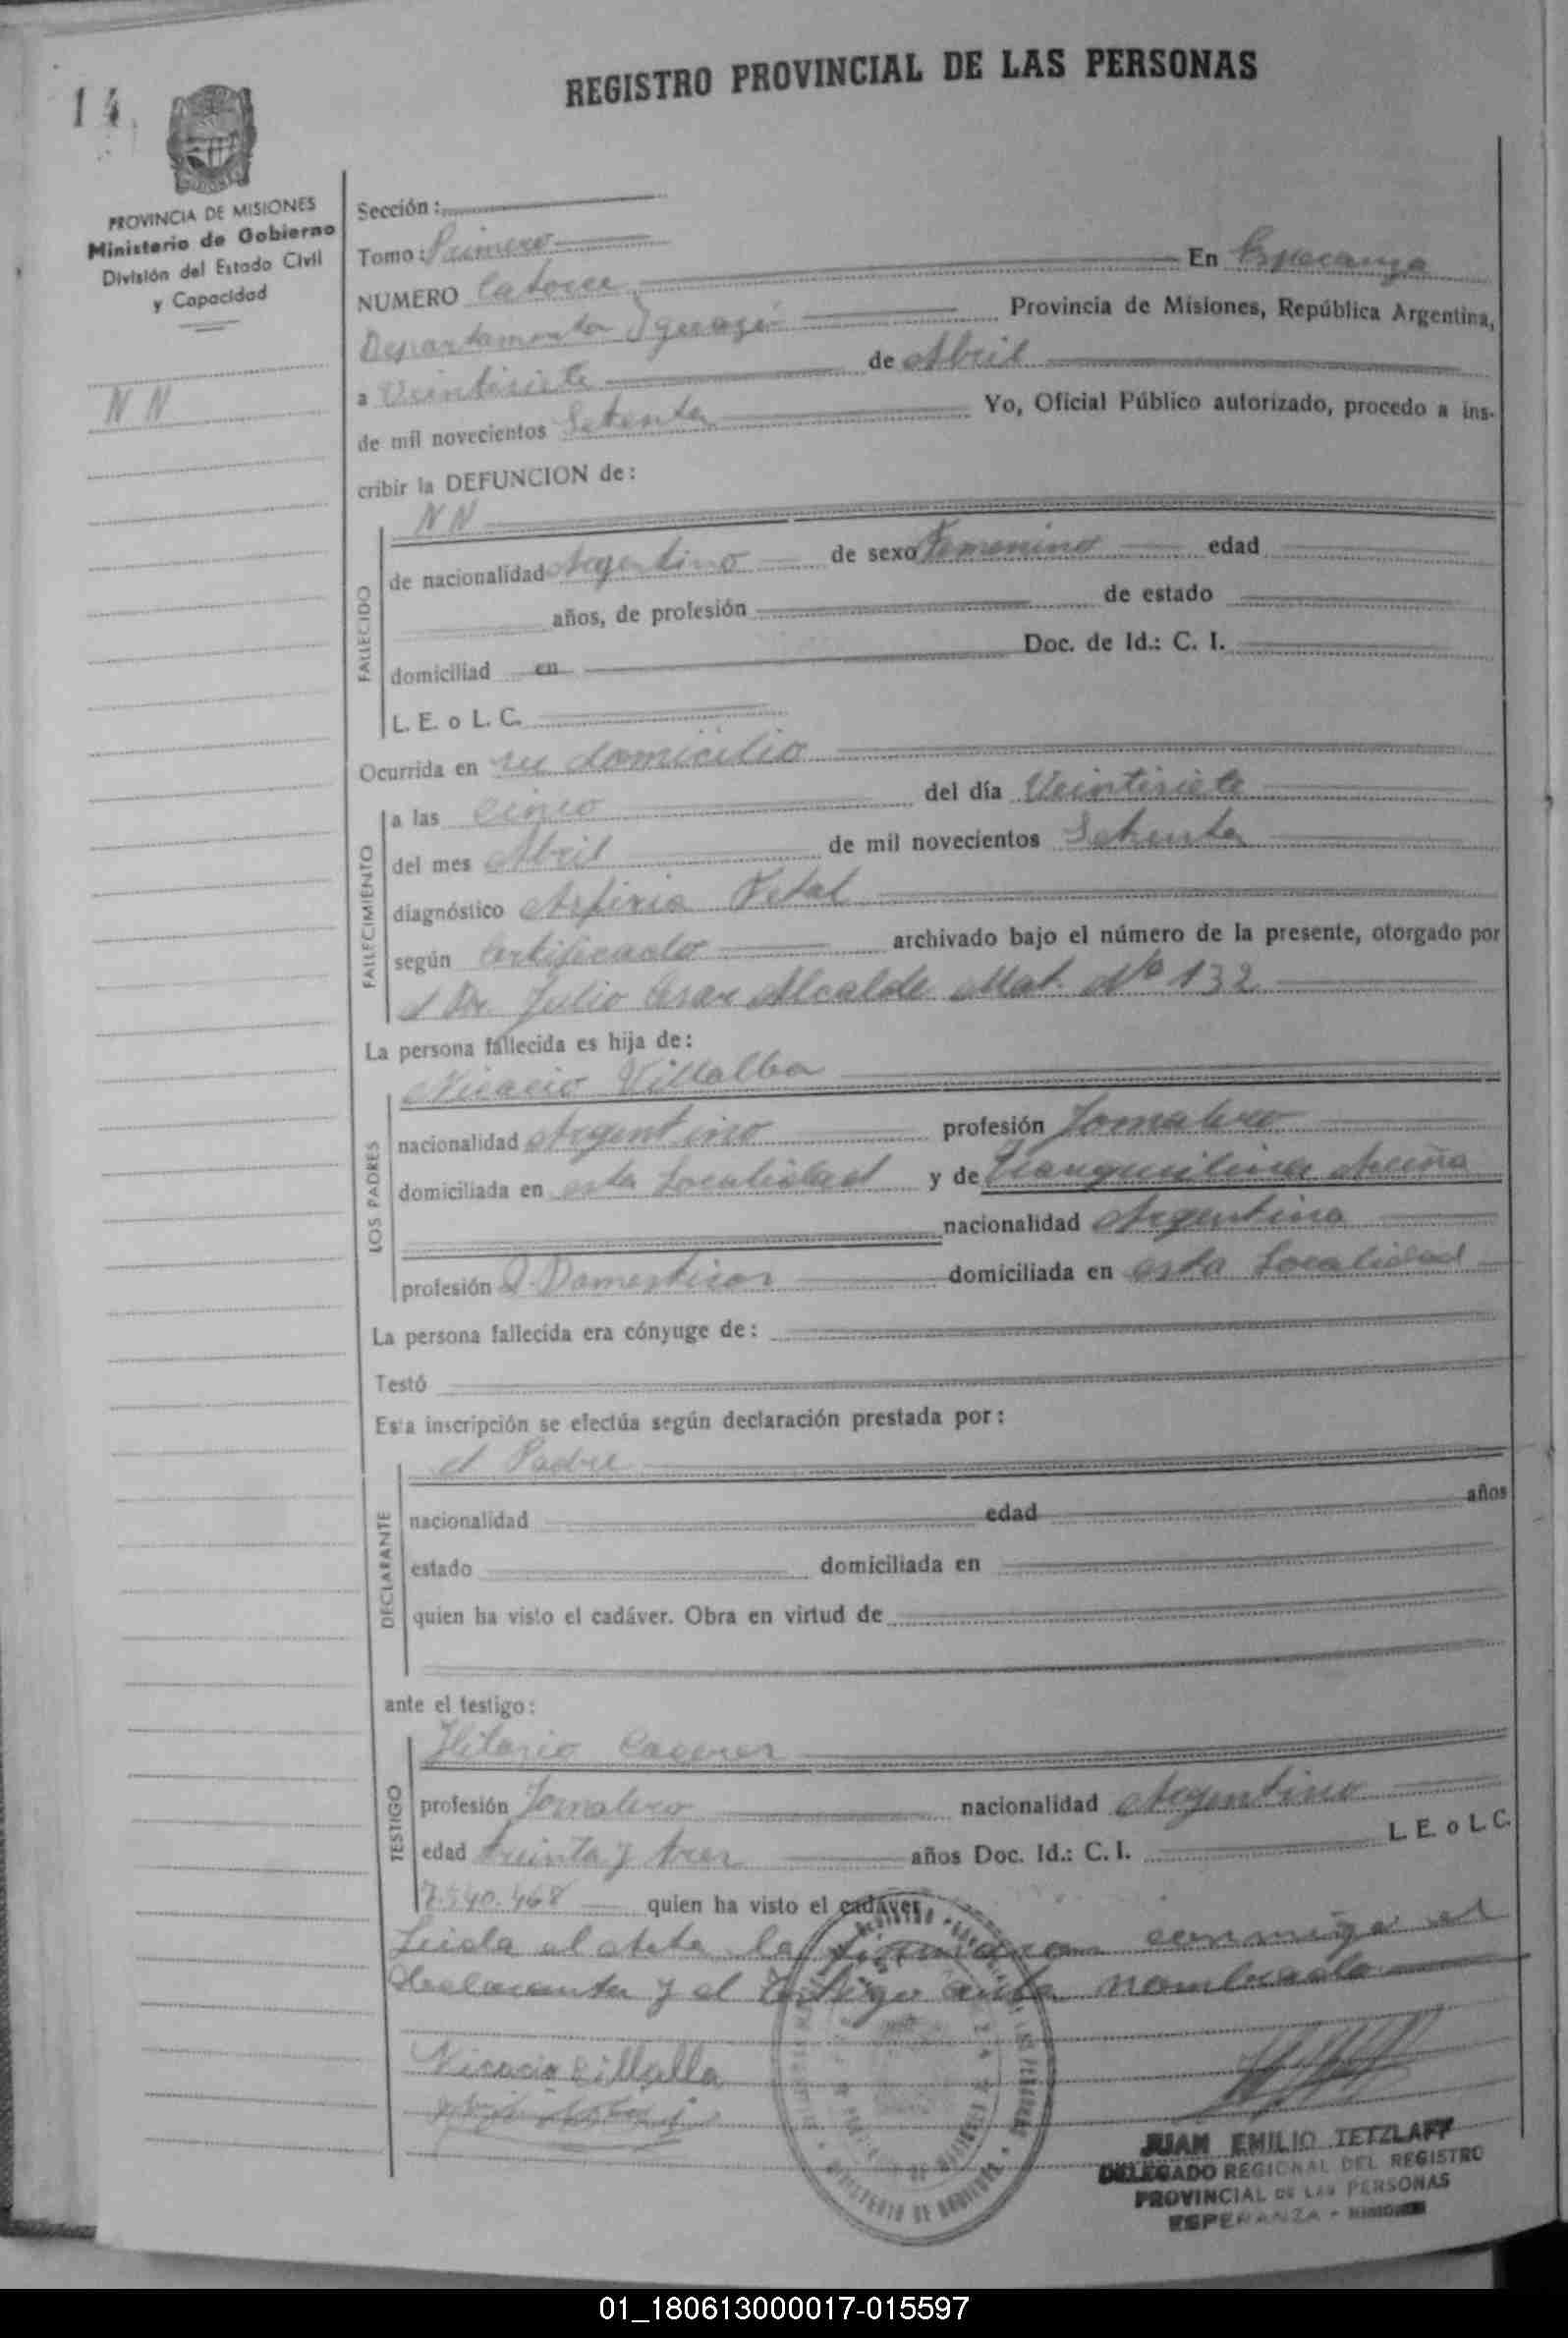 REGISTRO PROVINCIAL DE LAS PERSONAS
14
PROVINCIA DE MISIONES
Ministerio de Gobierno
División del Estado Civil
y Capacidad
N N
Sección:
Tomo: Primero
NUMERO Catorce En Esperanza
Departamento Iguazú Provincia de Misiones, República Argentina,
a Veintisiete de Abril
de mil novecientos Setenta Yo, Oficial Público autorizado, procedo a ins-
cribir la DEFUNCION de:
N N
FALLECIDO
de nacionalidad Argentino de sexo Femenino edad
años, de profesión de estado
domiciliad en Doc. de Id.: C. I.
L. E. o L. C.
Ocurrida en su domicilio
FALLECIMIENTO
a las cinco del día Veintisiete
del mes Abril de mil novecientos Setenta
diagnóstico Asfixia Fetal
según Certificado archivado bajo el número de la presente, otorgado por
el Dr. Julio Cesar Alcalde Mat. Nº 132
La persona fallecida es hija de:
Nicacio Villalba
LOS PADRES
nacionalidad Argentino profesión Jornalero
domiciliada en esta Localidad y de Tranquilina
nacionalidad Argentina
profesión Q. Domesticos domiciliada en esta Localidad
La persona fallecida era cónyuge de:
Testó
Esta inscripción se efectúa según declaración prestada por:
el Padre
DECLARANTE
nacionalidad edad años
estado domiciliada en
quien ha visto el cadáver. Obra en virtud de
ante el testigo:
Hilario Caceres
TESTIGO
profesión Jornalero nacionalidad Argentino
edad treinta y tres años Doc. Id.: C. I. L. E. o L. C.
7.540.468 quien ha visto el cadáver
Leida el Acta la firmaron conmigo el
declarante y el testigo ante nombrado
Nicacio Villalba
JUAN EMILIO TETZLAFF
DELEGADO REGIONAL DEL REGISTRO
PROVINCIAL DE LAS PERSONAS
ESPERANZA - MISIONES
01_180613000017-015597